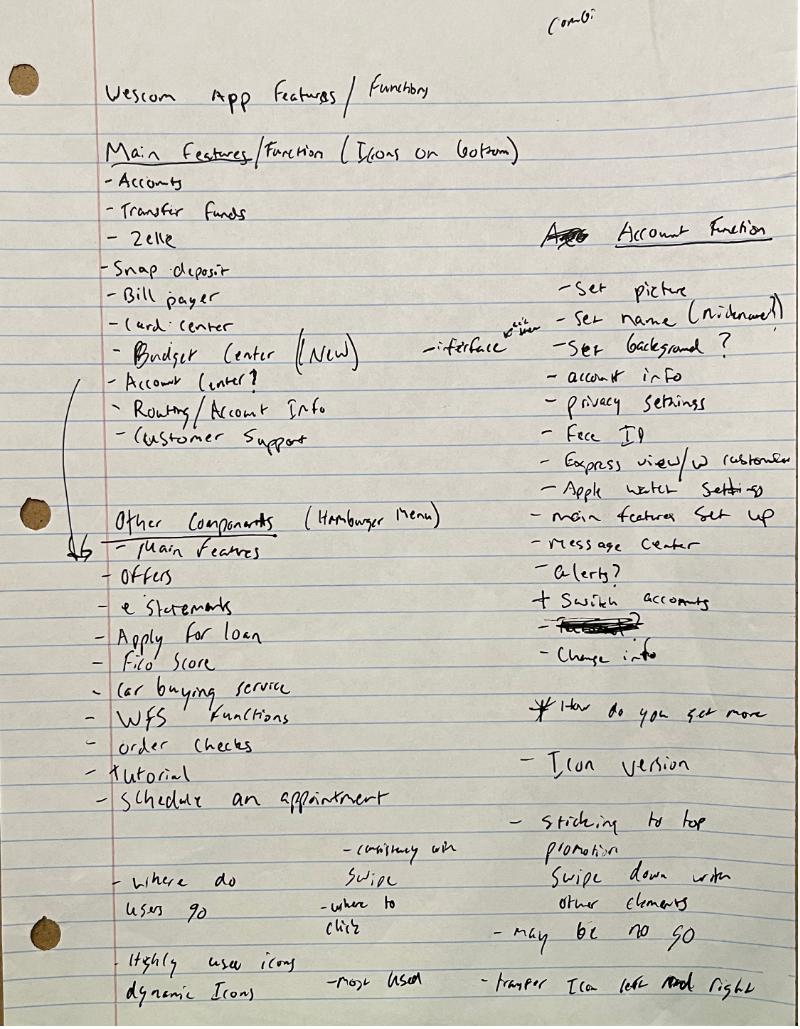 Combi
Wescom App Features / Functions
Main Features/Function (Icons on bottom)
- Accounts
- Transfer funds
- Zelle
- Snap deposit
- Bill payer
- Card center
- Budget Center (New)
- Account Center?
- Routing/Account Info
- Customer Support
Other Components (Hamburger Menu)
- Main features
- Offers
- e statements
- Apply for loan
- Fico Score
- Car buying service
- WFS functions
- order checks
- tutorial
- Schedule an appointment
Account Function
- Set picture
- Set name (Nickname?)
- interface
- Set background ?
- account info
- privacy settings
- Face ID
- Express view/w customer
- Apple watch setting
- main features set up
- message center
- alerts?
+ Switch accounts
- Change info
* How do you get more
- Icon version
- Sticking to top
promotion
Swipe down with
other elements
- may be no go
- transfer Icon left and right
- consistency with
Swipe
- where to
click
- most used
- where do
users go
- Highly used icons
dynamic Icons